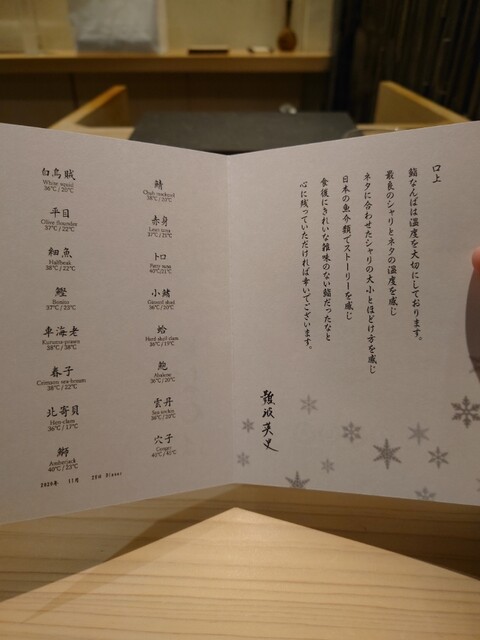 白烏賊
White squid
36℃/20℃
平目
Olive flounder
37℃/22℃
細魚
Halfbeak
38℃/22℃
鰹
Bonito
37℃/23℃
車海老
Kuruma prawn
38℃/38℃
春子
Crimson sea bream
38℃/22℃
北寄貝
Hen clam
36℃/17℃
鰤
Amberjack
40℃/23℃
鯖
Chub mackerel
38℃/22℃
赤身
Lean tuna
37℃/21℃
トロ
Fatty tuna
40℃/21℃
小鰭
Gizzard shad
36℃/10℃
蛤
Hard shell clam
36℃/15℃
鮑
Abalone
36℃/20℃
雲丹
Sea urchin
36℃/20℃
穴子
Conger
42℃/42℃
11月 25日 Dinner
口上
鮨なんばは温度を大切にしております。
最良のシャリとネタの温度を感じ
ネタに合わせたシャリの大小とほどけ方を感じ
日本の魚介類でストーリーを感じ
食後にきれいな雑味のない鮨だったなと
心に残っていただければ幸いでございます。
難波英史